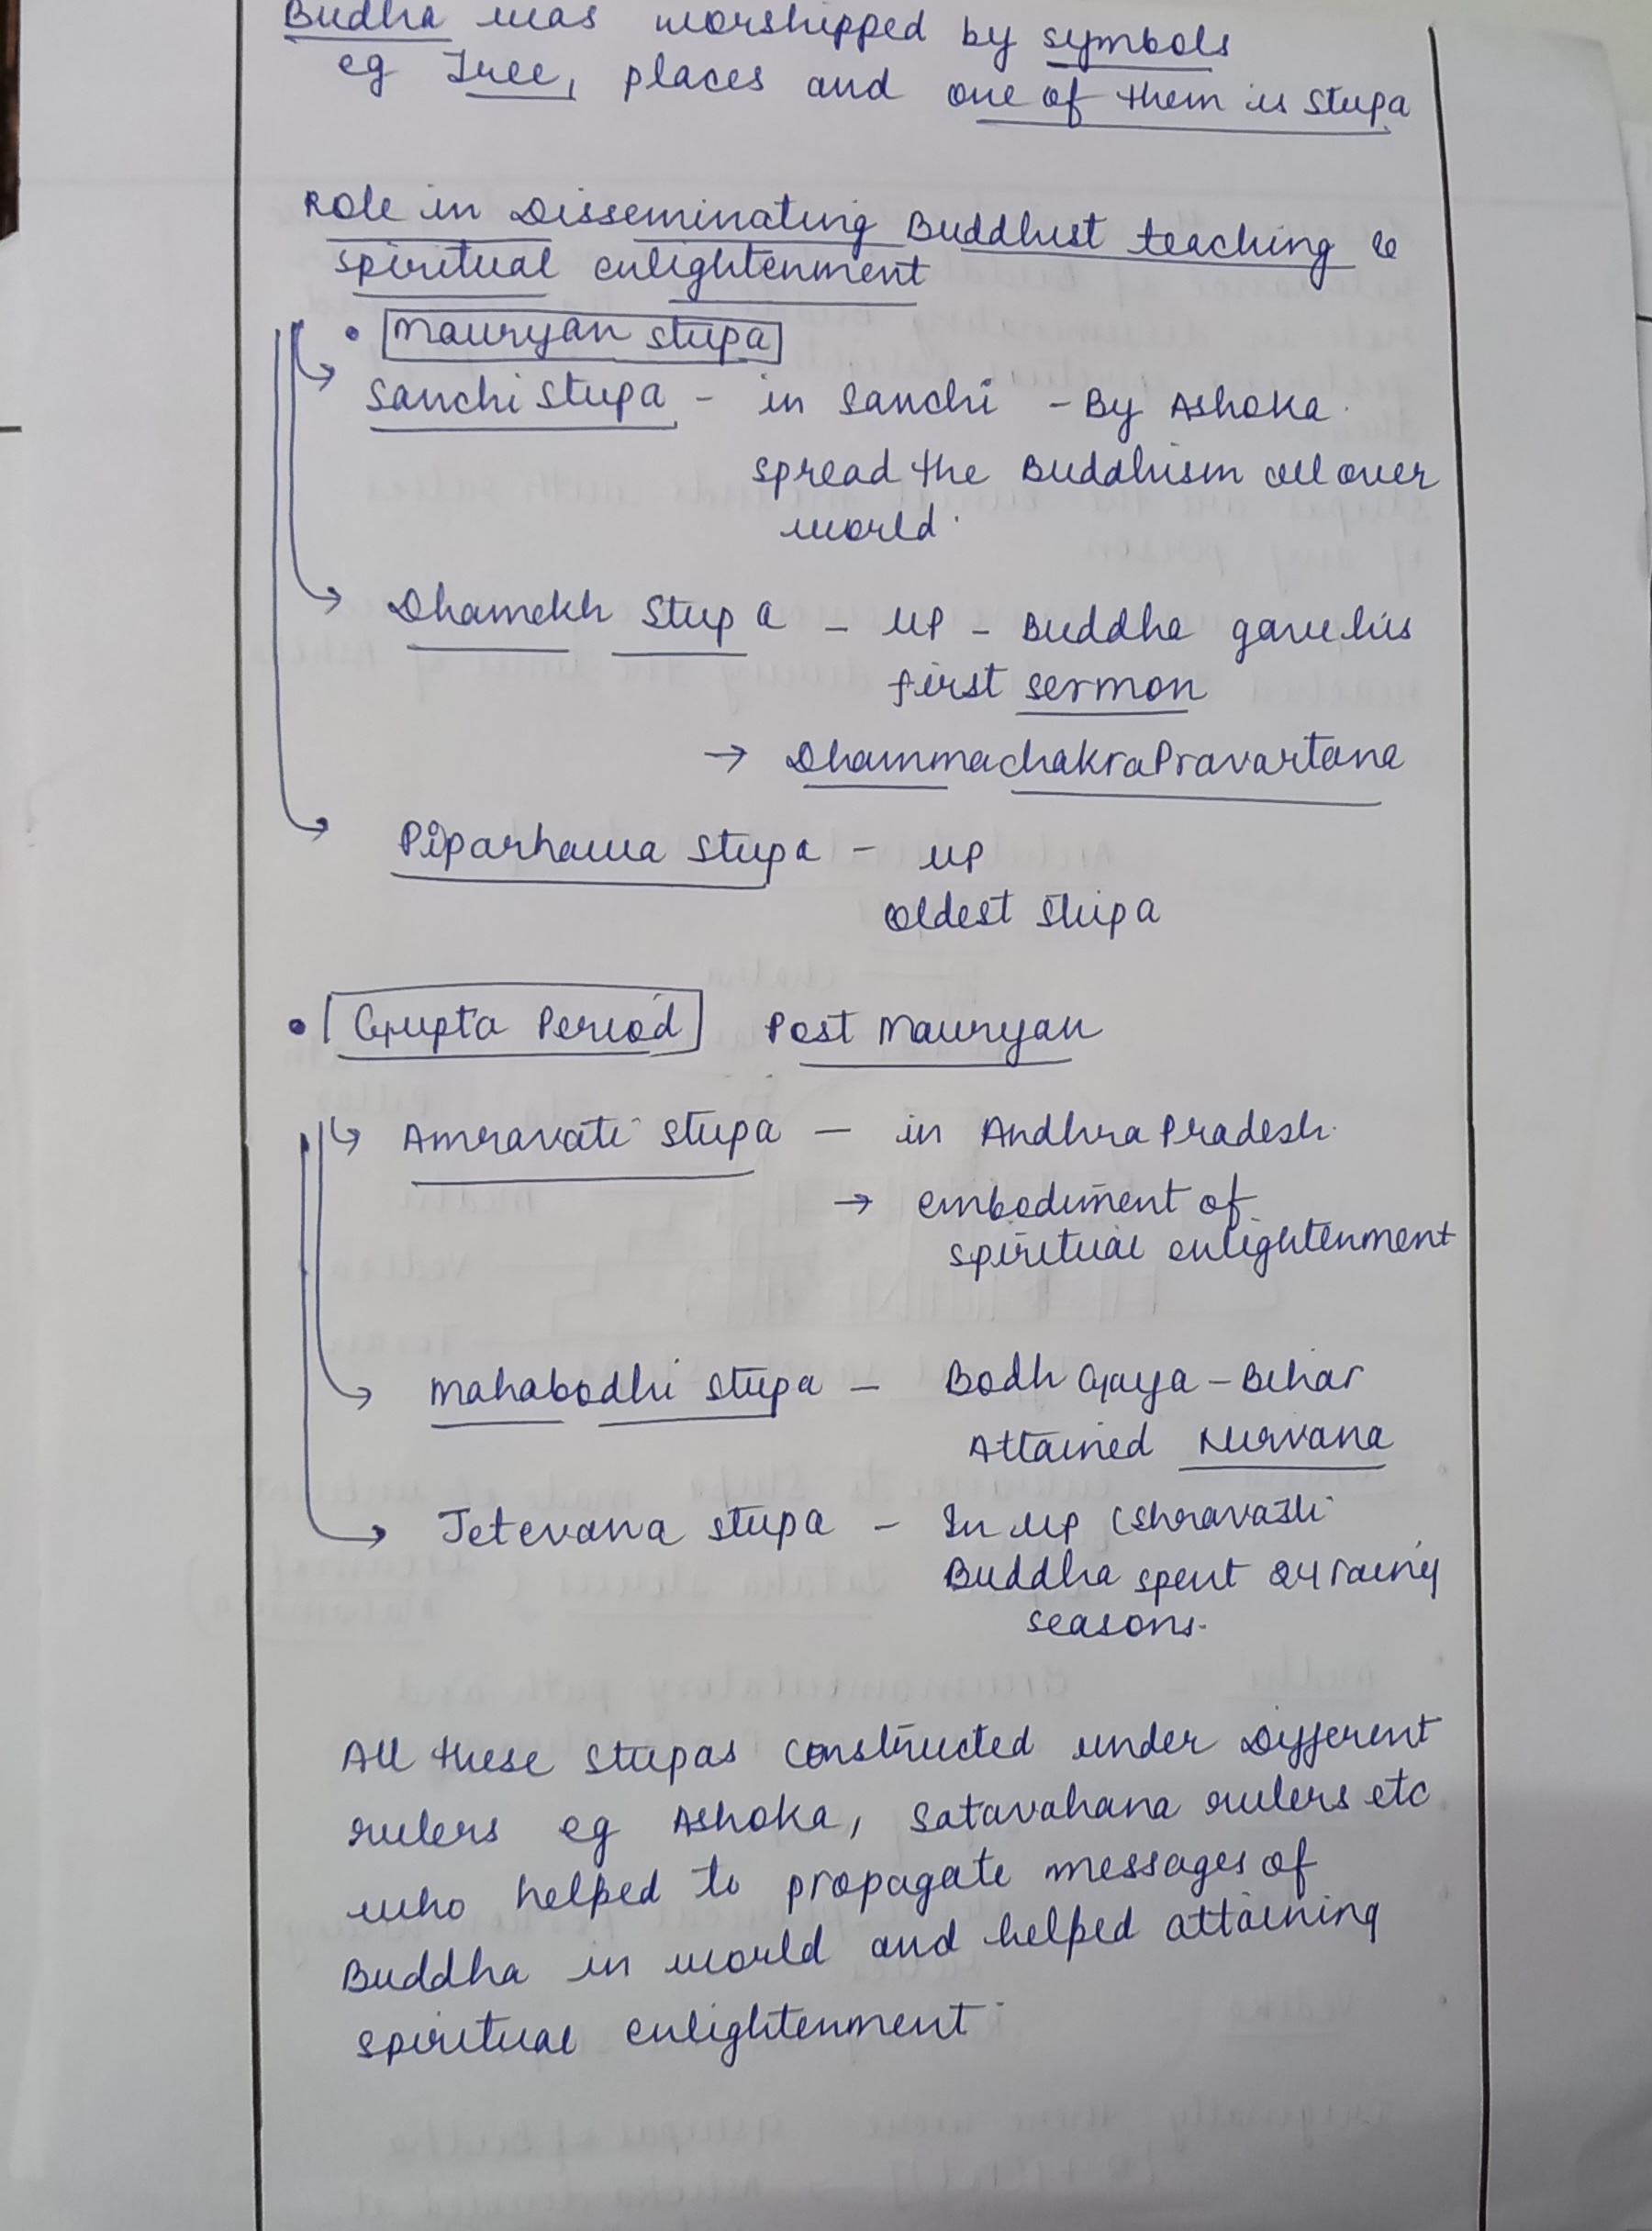 Budha was worshipped by symbols
eg Tree, places and one of them is Stupa
Role in Disseminating Buddhist teaching &
spiritual enlightenment
• Mauryan stupa
Sanchi Stupa - in Sanchi - By Ashoka.
spread the Buddhism all over
world.
→ Dhamekh Stupa - UP - Buddha gave his
first sermon
→ DhammachakraPravartana
→ Piparhawa Stupa - UP
oldest stupa
• Gupta Period Post Mauryan
↳ Amravati stupa - in Andhra Pradesh.
→ embodiment of
spiritual enlightenment
→ Mahabodhi stupa - Bodh Gaya - Bihar
Attained Nirvana
→ Jetevana stupa - In UP (Shravasti
Buddha spent 24 rainy
seasons.
All these stupas constructed under Different
rulers eg Ashoka, Satavahana rulers etc
who helped to propagate messages of
Buddha in world and helped attaining
spiritual enlightenment